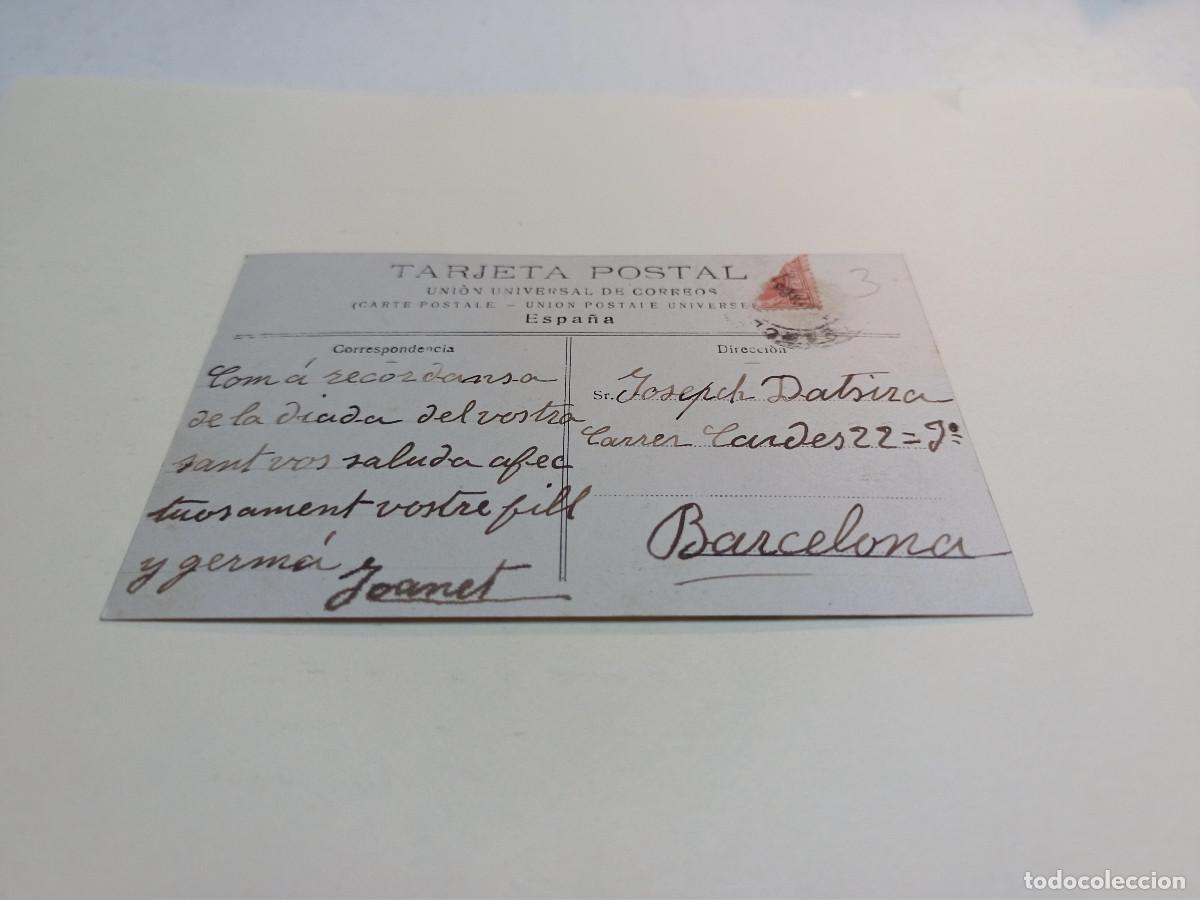 TARJETA POSTAL
UNIÓN UNIVERSAL DE CORREOS
(CARTE POSTALE. - UNION POSTALE UNIVERSE
España
3
Correspondencia
Com á recordansa
de la diada del vostro
sant vos saluda afec
tuosament vostre fill
y germá
Joanet
Dirección
Sr. Joseph Datsira
Carrer Cardes 22 =
Barcelona
todocoleccion